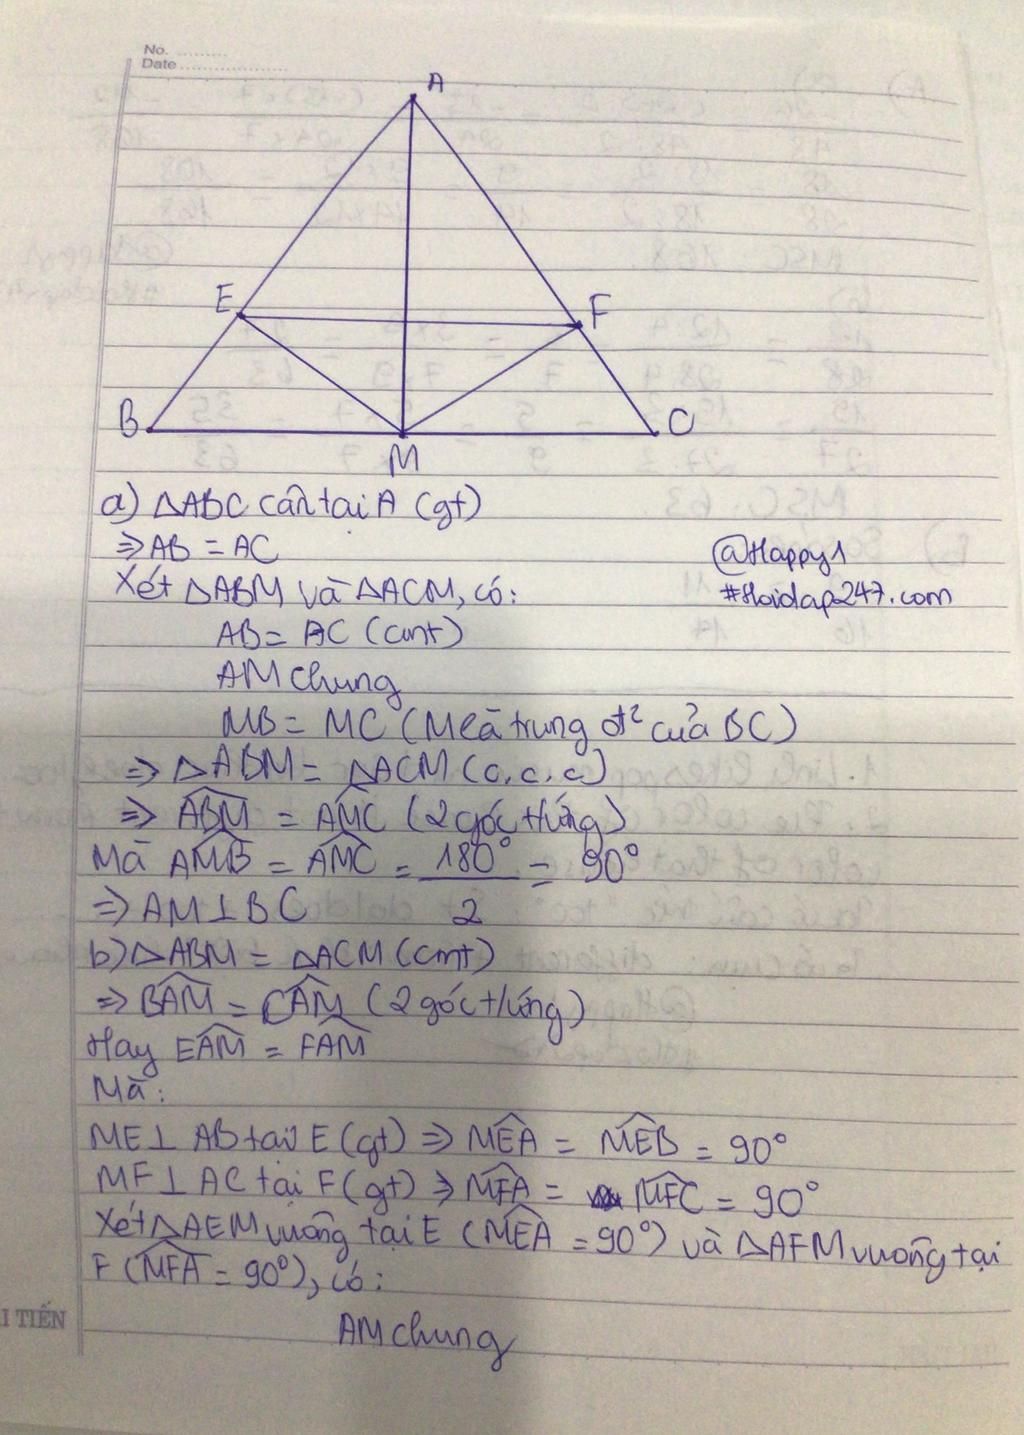 No. .........
Date ....................
A
E
F
B
M
C
a) △ABC cân tại A (gt)
⇒ AB = AC
@Happy1
Xét △ABM và △ACM, có:
#Hoidap247.com
AB = AC (cmt)
AM chung
MB = MC (M là trung đ² của BC)
⇒ △ABM = △ACM (c.c.c)
⇒ ABM̂ = AMĈ (2 góc t/ứng)
Mà AMB̂ = AMĈ = 180°/2 = 90°
⇒ AM ⊥ BC
b) △ABM = △ACM (cmt)
⇒ BAM̂ = CAM̂ (2 góc t/ứng)
Hay EAM̂ = FAM̂
Mà:
ME ⊥ AB tại E (gt) ⇒ MEÂ = MEB̂ = 90°
MF ⊥ AC tại F (gt) ⇒ MFÂ = MFĈ = 90°
Xét △AEM vuông tại E (MEÂ = 90°) và △AFM vuông tại
F (MFÂ = 90°), có:
I TIẾN
AM chung